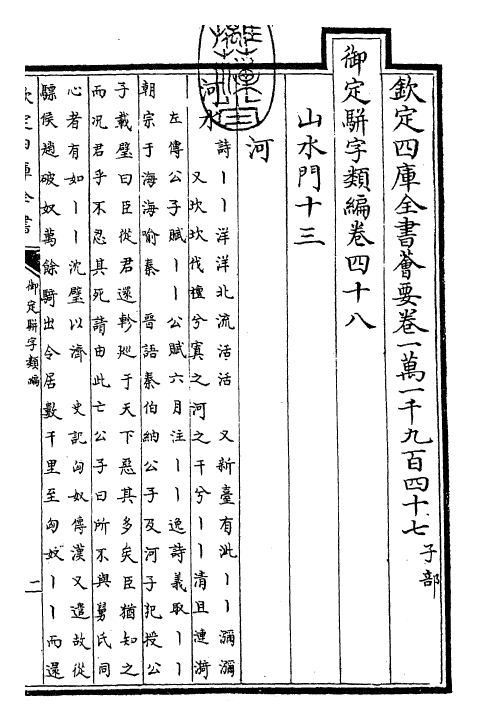 欽定四庫全書薈要卷一萬一千九百四十七 子部
御定駢字類編卷四十八
山水門十三
河
河水
詩丨丨洋洋北流活活 又新臺有泚丨丨瀰瀰
又坎坎伐檀兮寘之河之干兮丨丨清且漣漪
左傳公子賦丨丨公賦六月注丨丨逸詩義取丨丨
朝宗于海海喻秦 晉語秦伯納公子及河子犯授公
子載璧曰臣從君還軫廵于天下惡其多矣臣猶知之
而况君乎不忍其死請由此亡公子曰所不與舅氏同
心者有如丨丨沈璧以濟 史記匈奴傳漢又遣故從
驃侯趙破奴萬餘騎出令居數千里至匈奴丨丨而還
欽定四庫全書
御定駢字類編